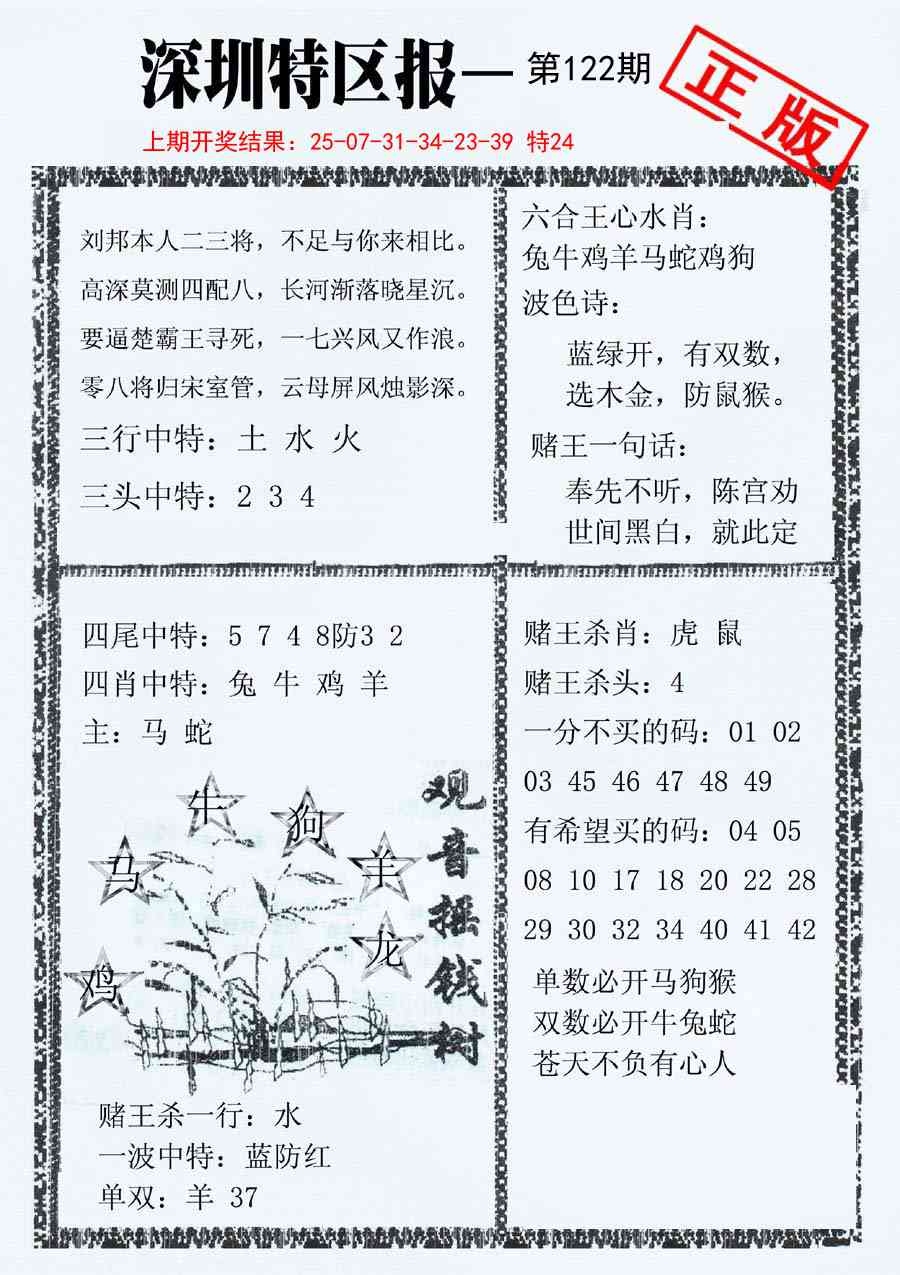 深圳特区报— 第122期
正版
上期开奖结果：25-07-31-34-23-39 特24
刘邦本人二三将，不足与你来相比。
高深莫测四配八，长河渐落晓星沉。
要逼楚霸王寻死，一七兴风又作浪。
零八将归宋室管，云母屏风烛影深。
三行中特：土 水 火
三头中特：2 3 4
六合王心水肖：
兔牛鸡羊马蛇鸡狗
波色诗：
蓝绿开，有双数，
选木金，防鼠猴。
赌王一句话：
奉先不听，陈宫劝
世间黑白，就此定
四尾中特：5 7 4 8防3 2
四肖中特：兔 牛 鸡 羊
主：马 蛇
牛
狗
马
羊
龙
鸡
观音摇钱树
赌王杀一行：水
一波中特：蓝防红
单双：羊 37
赌王杀肖：虎 鼠
赌王杀头：4
一分不买的码：01 02
03 45 46 47 48 49
有希望买的码：04 05
08 10 17 18 20 22 28
29 30 32 34 40 41 42
单数必开马狗猴
双数必开牛兔蛇
苍天不负有心人